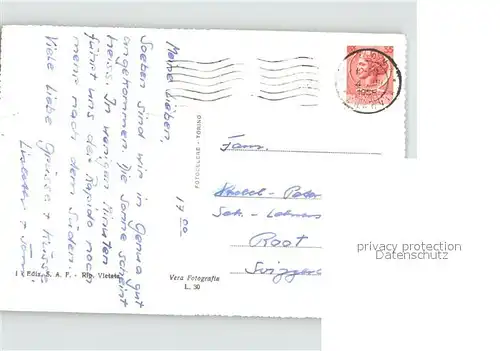 Meine Lieben,
Soeben sind wir in Genua gut
angekommen. Die Sonne scheint
heiss. In wenigen Minuten
führt uns der Rapido noch
mehr nach dem Süden.
Viele liebe Grüsse + Küsse
17 00
FOTOCELERE - TORINO
Fam.
Peter
Sek. - Lehrers
Root
Svizzera
privacy protection
Datenschutz
Ediz. S. A. F. - Rip. Vietata
Vera Fotografia
L. 30